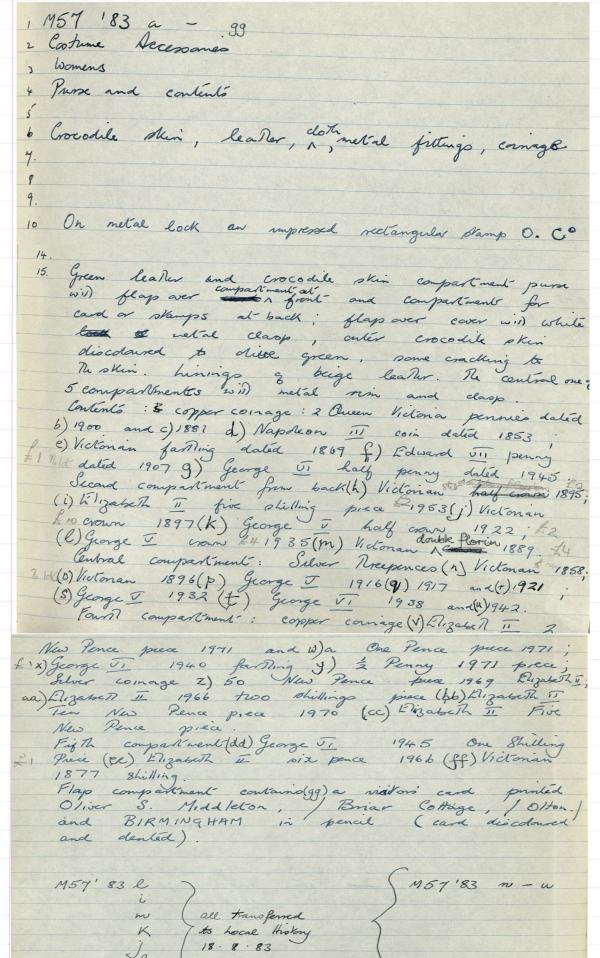 1 M57 '83 a - gg
2 Costume Accessories
3 Womens
4 Purse and contents
5
6 Crocodile skin, leather, cloth, metal fittings, coinage
7.
8
9.
10 On metal lock an impressed rectangular stamp O. Co
14.
15. Green leather and crocodile skin compartment purse
with flap over compartment at front and compartment for
card or stamps at back; flap over cover with white
metal clasp, outer crocodile skin
discoloured to olive green, some cracking to
the skin. Linings of beige leather. The central one of
5 compartments with metal rim and clasp.
Contents: copper coinage: 2 Queen Victoria pennies dated
b) 1900 and c) 1881 d) Napoleon III coin dated 1853;
e) Victorian farthing dated 1869 f) Edward VII penny
dated 1907 g) George VI half penny dated 1945
Second compartment from back (h) Victorian half crown 1895;
(i) Elizabeth II five shilling piece 1953 (j) Victorian
£10 crown 1897 (k) George V half crown 1922; £2
(l) George V crown £4 1935 (m) Victorian double florin 1889. £4
Central compartment: Silver Threepences (n) Victorian 1858;
(o) Victorian 1896 (p) George V 1916 (q) 1917 and (r) 1921;
(s) George V 1932 (t) George VI 1938 and (u) 1942.
Fourth compartment: copper coinage (v) Elizabeth II 2
New Pence piece 1971 and w) a One Pence piece 1971;
x) George VI 1940 farthing y) ½ Penny 1971 piece;
Silver coinage z) 50 New Pence piece 1969 Elizabeth II;
aa) Elizabeth II 1966 two shillings piece (bb) Elizabeth II
Ten New Pence piece 1970 (cc) Elizabeth II Five
New Pence piece.
Fifth compartment (dd) George VI 1945 One Shilling
Piece (ee) Elizabeth II six pence 1966 (ff) Victorian
1877 shilling.
Flap compartment contains (gg) a visitors card printed
Oliver S. Middleton, / Briar Cottage, / Olton. /
and BIRMINGHAM in pencil (card discoloured
and dented).
M57' 83 l
i
m
K
j
all transferred
to Local History
18. 8. 83
M57 '83 n - u